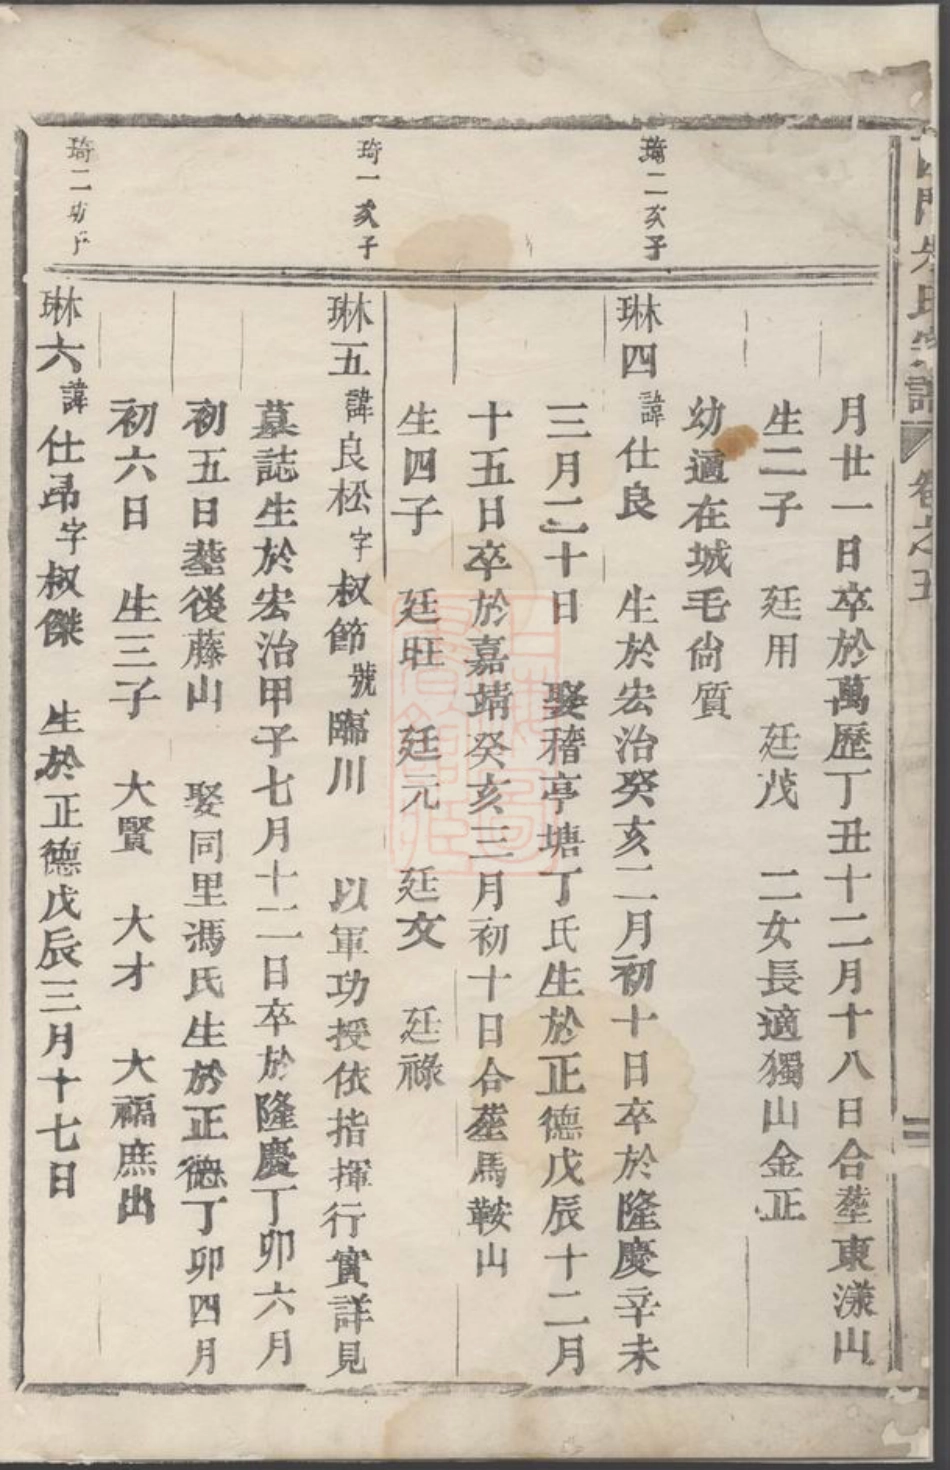 朱氏宗譜 卷之五
月廿一日卒於萬歷丁丑十二月十八日合塟東漾山
生二子 廷用 廷茂 二女長適獨山金正
幼適在城毛尙質
琦二次子
琳四諱仕良 生於宏治癸亥二月初十日卒於隆慶辛未
三月二十日 娶稽亭塘丁氏生於正德戊辰十二月
十五日卒於嘉靖癸亥三月初十日合塟馬鞍山
生四子 廷旺 廷元 廷文 廷祿
琦一次子
琳五諱良松字椒節號臨川 以軍功授依指揮行實詳見
墓誌生於宏治甲子七月十二日卒於隆慶丁卯六月
初五日塟後藤山 娶同里馮氏生於正德丁卯四月
初六日 生三子 大賢 大才 大福庶出
琦二
琳六諱仕昂字椒傑 生於正德戊辰三月十七日